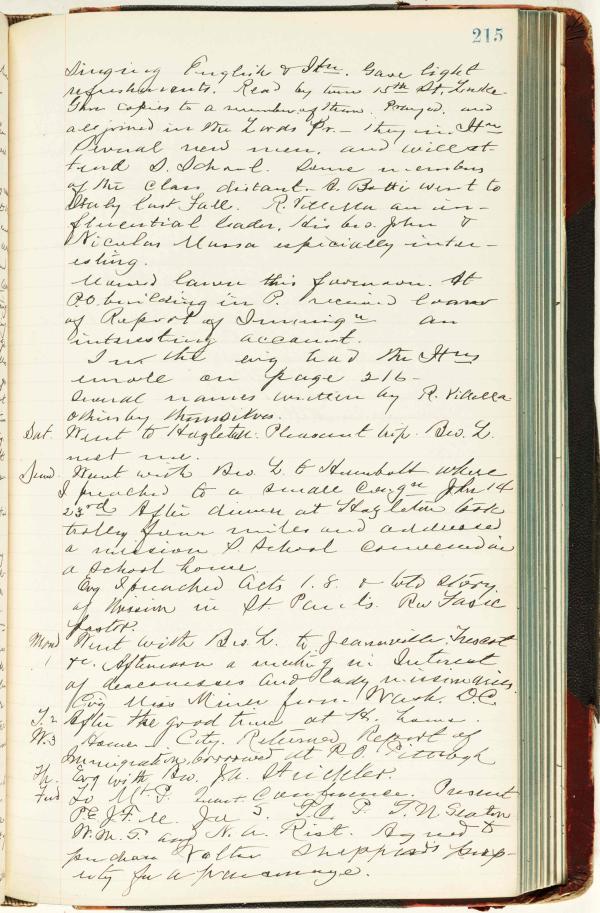 215
Singing English & Itn. Gave light
refreshments. Read by turn 15th St. Luke
Gave copies to a number of them. Prayed, and
all joined in the Lords Pr. - they in Itn
Several new men, and will at-
tend S. School. Some members
of the class distant. S. Botti went to
Italy last Fall. R. Villella an in-
fluential leader, His bro. John &
Nicolas Massa especially inter-
esting.
Mowed lawn this forenoon. At
P.O. building in P. received loan
of Report of Immign an
interesting account.
In the evg had the Itns
enrole on page 216 -
several names written by R. Villella
others by themselves.
Sat. Went to Hazleton. Pleasant trip. Bro. L.
met me.
Sund. Went with Bro L to Humbolt where
I preached to a small congn John 14
23rd After dinner at Hazleton took
trolley four miles and addressed
a mission S School convened in
a school house.
Evg I preached Acts 1.8. & told story
of Mission in St Paul's. Rev
pastor.
Mond 1 Went with Bro L. to Jeansville, Trescot
&c. Afternoon a meeting in Interest
of deaconesses and lady missionaries
Evg Miss Miner from Wash. D.C.
T. 2 After the good time at H. home.
W. 3 Home - City. Returned Report of
Immigration, borrowed at P.O. Pittsbgh
Th. Evg with Bro. Jn. Strickler.
Frid To Mt P. Quart. Conference. Present
P.E. J.F. T.N. Seaton
W.M.T. and N.A. Rist. Agreed to
purchase Walter Sheppard's prop-
erty for a parsonage.